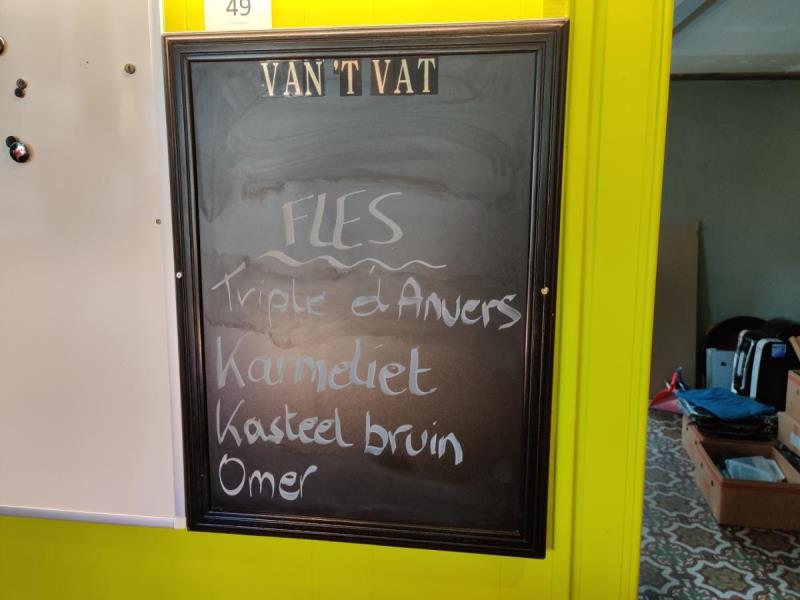 49
VAN 'T VAT
FLES
Triple d'Anvers
Karmeliet
Kasteel bruin
Omer